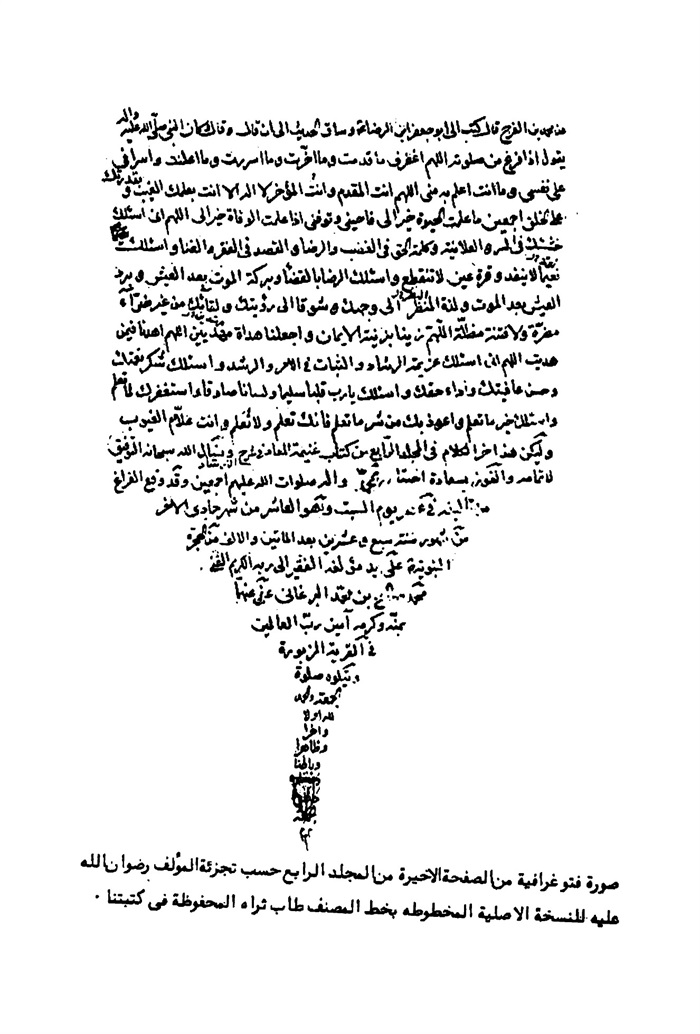 عن محمد بن الفرج قال كتب الى ابو جعفر ابن الرضا وساق الحديث الى ان قال وقال كان النبي صلى الله عليه واله
يقول اذا فرغ من صلوته اللهم اغفر لى ما قدمت وما اخرت وما اسررت وما اعلنت واسرافى
على نفسى وما انت اعلم به منى اللهم انت المقدم وانت المؤخر لا اله الا انت بعلمك الغيب وبقدرتك
على الخلق اجمعين ما علمت الحيوة خيرا لى فاحينى وتوفنى اذا علمت الوفاة خيرا لى اللهم انى اسئلك
خشيتك فى السر والعلانية وكلمة الحق فى الغضب والرضا والقصد فى الفقر والغنا واسئلك
نعيما لا ينفد وقرة عين لا تنقطع واسئلك الرضا بالقضاء وبركة الموت بعد العيش وبرد
العيش بعد الموت ولذة المنظر الى وجهك وشوقا الى رؤيتك ولقائك من غير ضراء
مضرة ولا فتنة مضلة اللهم زينا بزينة الايمان واجعلنا هداة مهتدين اللهم اهدنا فيمن
هديت اللهم انى اسئلك عزيمة الرشاد والثبات فى الامر والرشد واسئلك شكر نعمتك
وحسن عافيتك واداء حقك واسئلك يا رب قلبا سليما ولسانا صادقا واستغفرك لما تعلم
واسئلك خير ما تعلم واعوذ بك من شر ما تعلم فانك تعلم ولا نعلم وانت علام الغيوب
وليكن هذا اخر الكلام فى المجلد الرابع من كتاب غنيمة المعاد الله سبحانه التوفيق
لاتمامه والفوز بسعادة واله صلوات الله عليهم اجمعين وقد وقع الفراغ
يوم السبت وهو العاشر من شهر جمادى الاخر
من شهور سنة سبع وعشرين بعد الماتين والالف من الهجرة
النبوية على يد مؤلفه الفقير الى ربه الكريم الغنى
محمد صالح بن محمد البرغانى عفى عنهما
بمنه وكرمه آمين رب العالمين
فى القرية المزبورة
ويتلوه صلوة
الجمعة والحمد
لله اولا
واخرا
وظاهرا
وباطنا
صورة فتوغرافية من الصفحة الاخيرة من المجلد الرابع حسب تجزئة المؤلف رضوان الله
عليه للنسخة الاصلية المخطوطه بخط المصنف طاب ثراه المحفوظة فى كتبتنا .